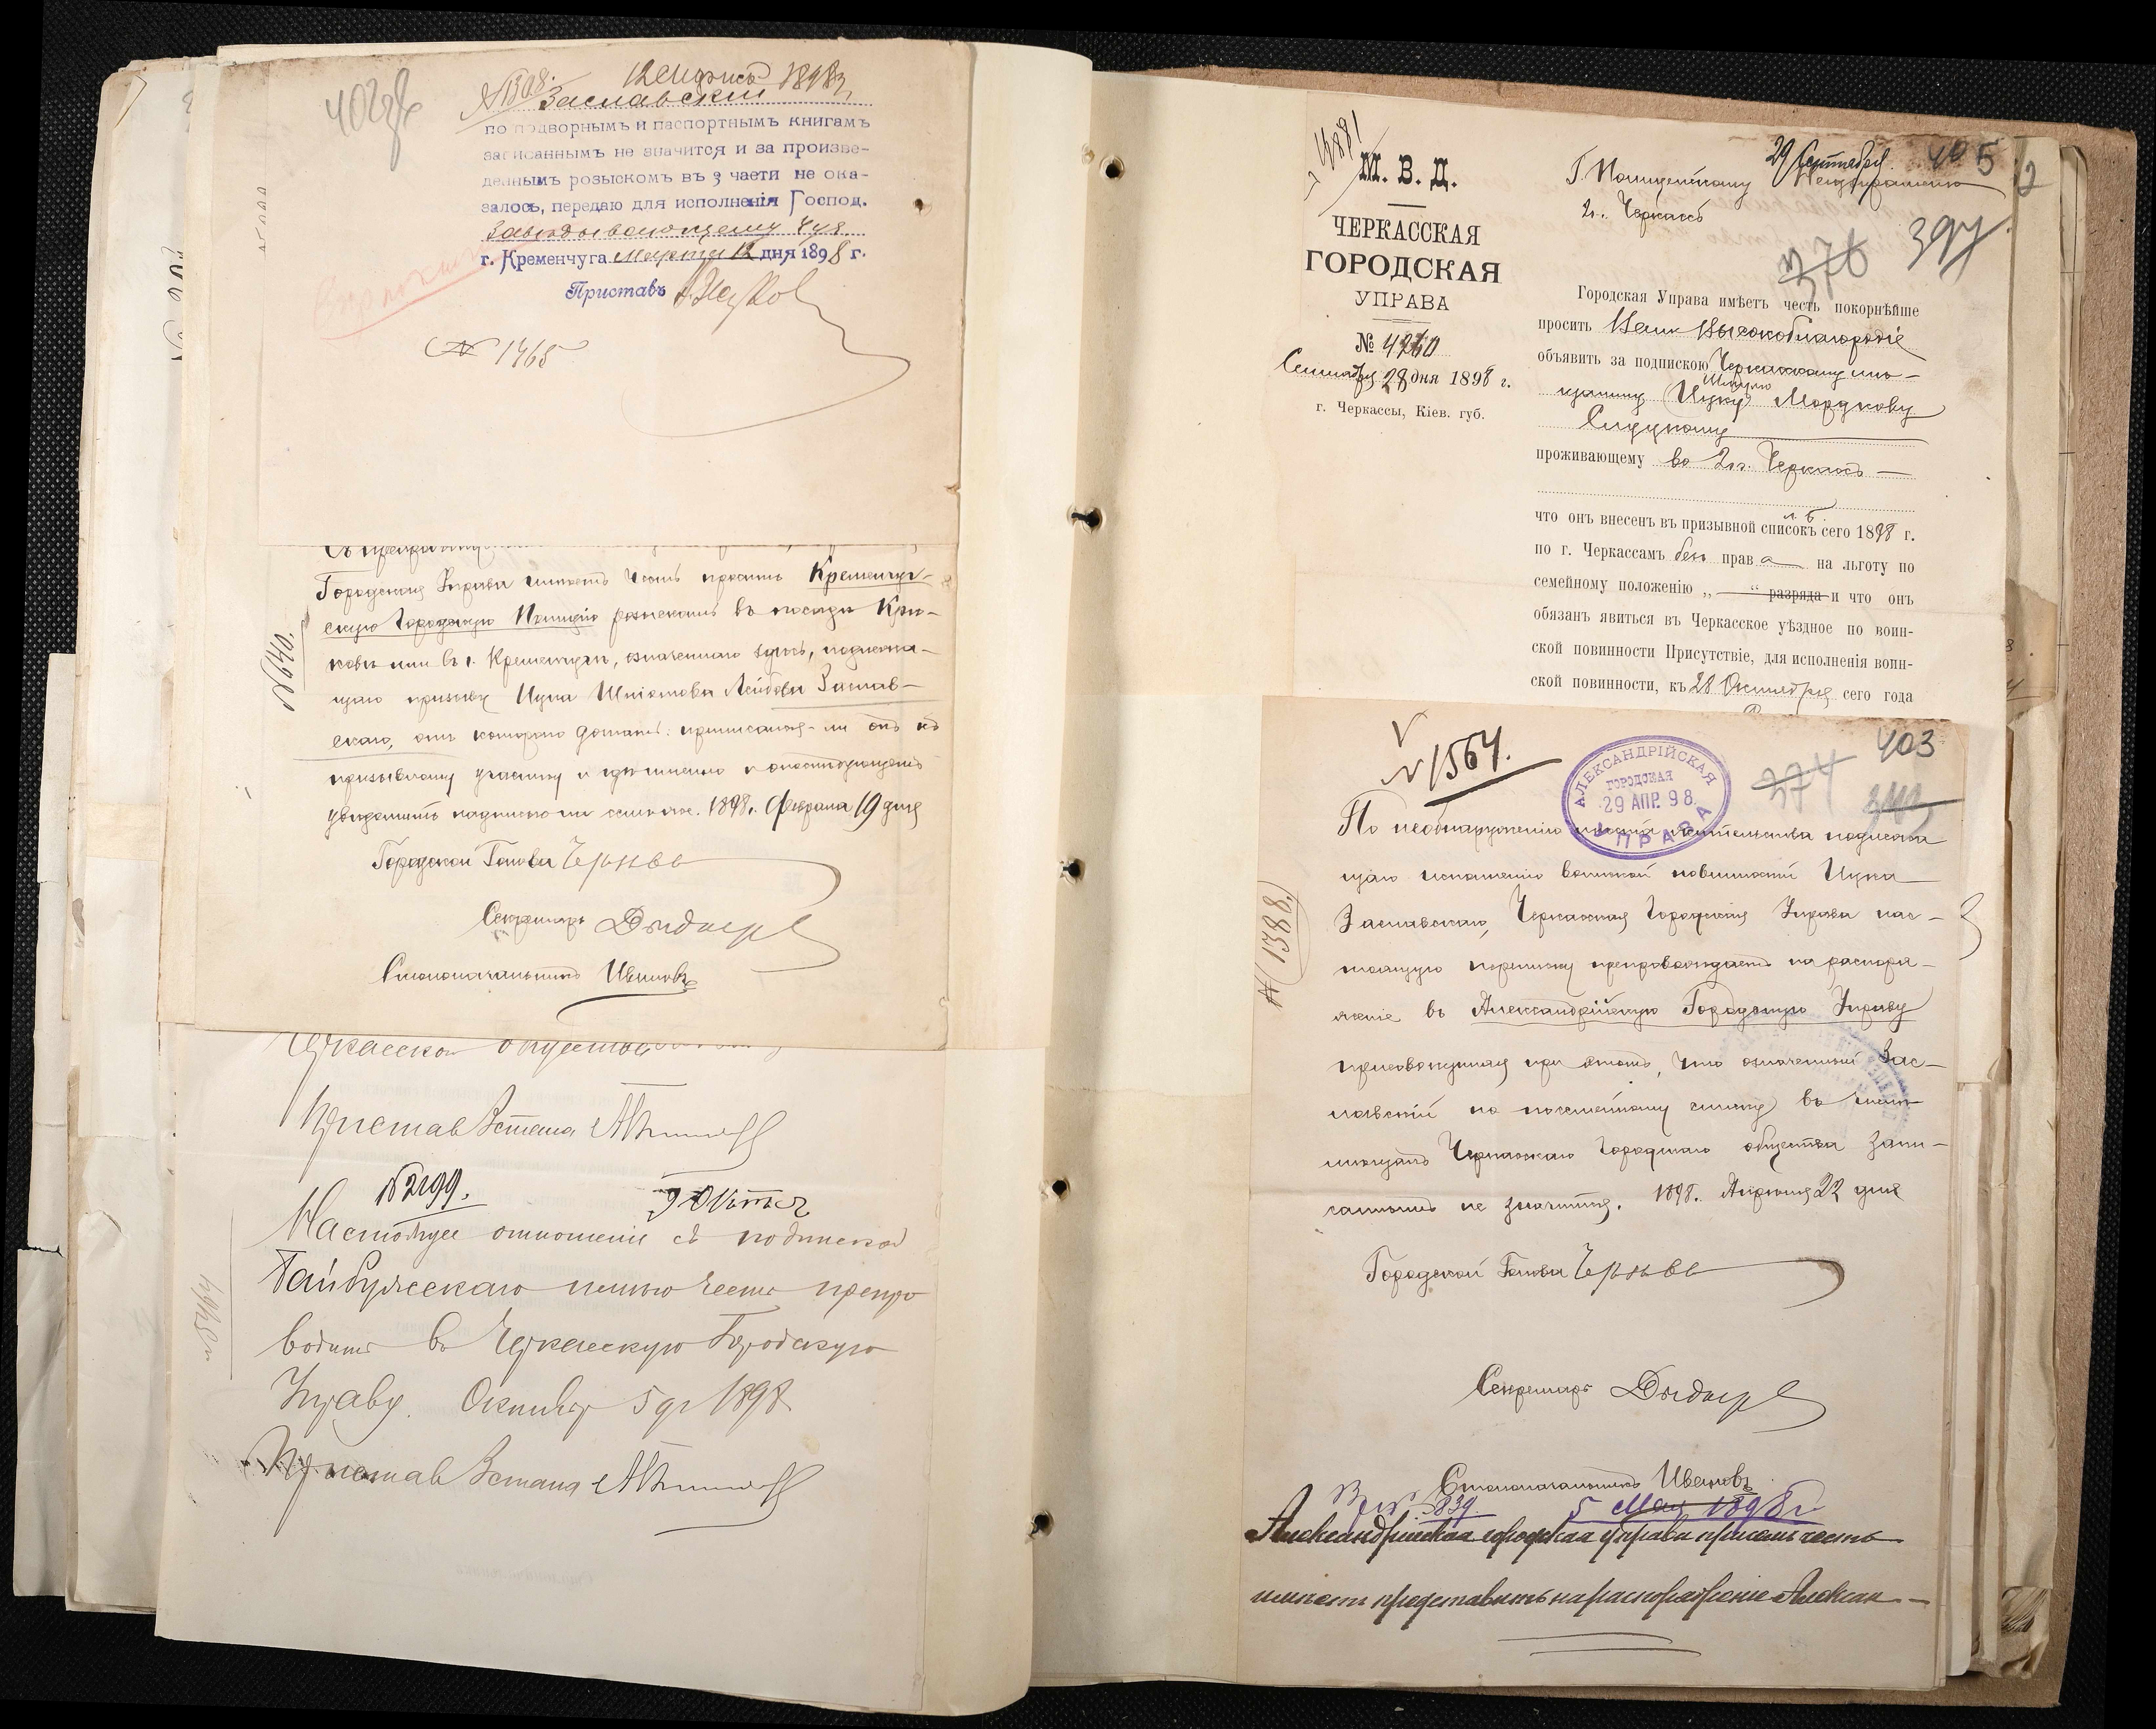 402
№1308. 12 Марта 1898
Заславскій
по подворнымъ и паспортнымъ книгамъ
записаннымъ не значится и за произве-
деннымъ розыскомъ въ 3 части не ока-
залось, передаю для исполненія Господ.
Завѣдывающему
г. Кременчуга Марта 12 дня 1898 г.
Приставъ
№ 1465
Городская Управа имѣетъ честь просить Кременчуг-
скую Городскую Полицію розыскать въ посадѣ Крю-
ковѣ или въ г. Кременчугѣ, означеннаго здѣсь, подлежа-
щаго призыву Ицка Шліомова Лейбова Заслав-
скаго, отъ котораго дознать: приписался-ли онъ къ
призывному участку и гдѣ именно и о послѣдующемъ
увѣдомить надписью на семъ-же. 1898 г. Февраля 19 дня
№640.
Городской Голова
Секретарь
Столоначальникъ Ивановъ
Черкасской
Приставъ 3 стана
№2199. 9 Октяб
Настоящее отношеніе съ подпиской
Тайбулсскаго имѣю честь препро
водить въ Черкасскую Городскую
Управу. Октября 5 дн 1898
Приставъ 3 стана
М. В. Д.
ЧЕРКАССКАЯ
ГОРОДСКАЯ
УПРАВА
№ 4260
Сентября 28 дня 1898 г.
г. Черкассы, Кіев. губ.
29 Сентября 405
Г. Полицейскому
г. Черкассъ
376 397
Городская Управа имѣетъ честь покорнѣйше
просить Ваше Высокоблагородіе
объявить за подпискою Черкасскому мѣ-
щанину Ицку Мордкову
Слуцкому
проживающему въ г. Черкассъ
что онъ внесенъ въ призывной списокъ сего 1898 г.
по г. Черкассамъ безъ права на льготу по
семейному положенію „ — “ разряда и что онъ
обязанъ явиться въ Черкасское уѣздное по воин-
ской повинности Присутствіе, для исполненія воин-
ской повинности, къ 28 Октября сего года
№1564.
АЛЕКСАНДРІЙСКАЯ
ГОРОДСКАЯ
29 АПР. 98
УПРАВА
374 403
По необнаруженію мѣста жительства подлежа
щаго исполненію воинской повинности Ицка
Заславскаго, Черкасская Городская Управа нас-
тоящую переписку препровождаетъ на распоря-
женіе въ Александрійскую Городскую Управу
присовокупляя при этомъ, что означенный Зас-
лавскій по посемейному списку въ числѣ
мѣщанъ Черкасскаго Городскаго общества запи-
саннымъ не значится. 1898 г. Апрѣля 22 дня
№ 1388.
Городской Голова
Секретарь
Столоначальникъ Ивановъ
839. 5 Мая 1898 г.
Александрійская городская управа честь
имѣетъ представить на распоряженіе Алексан-